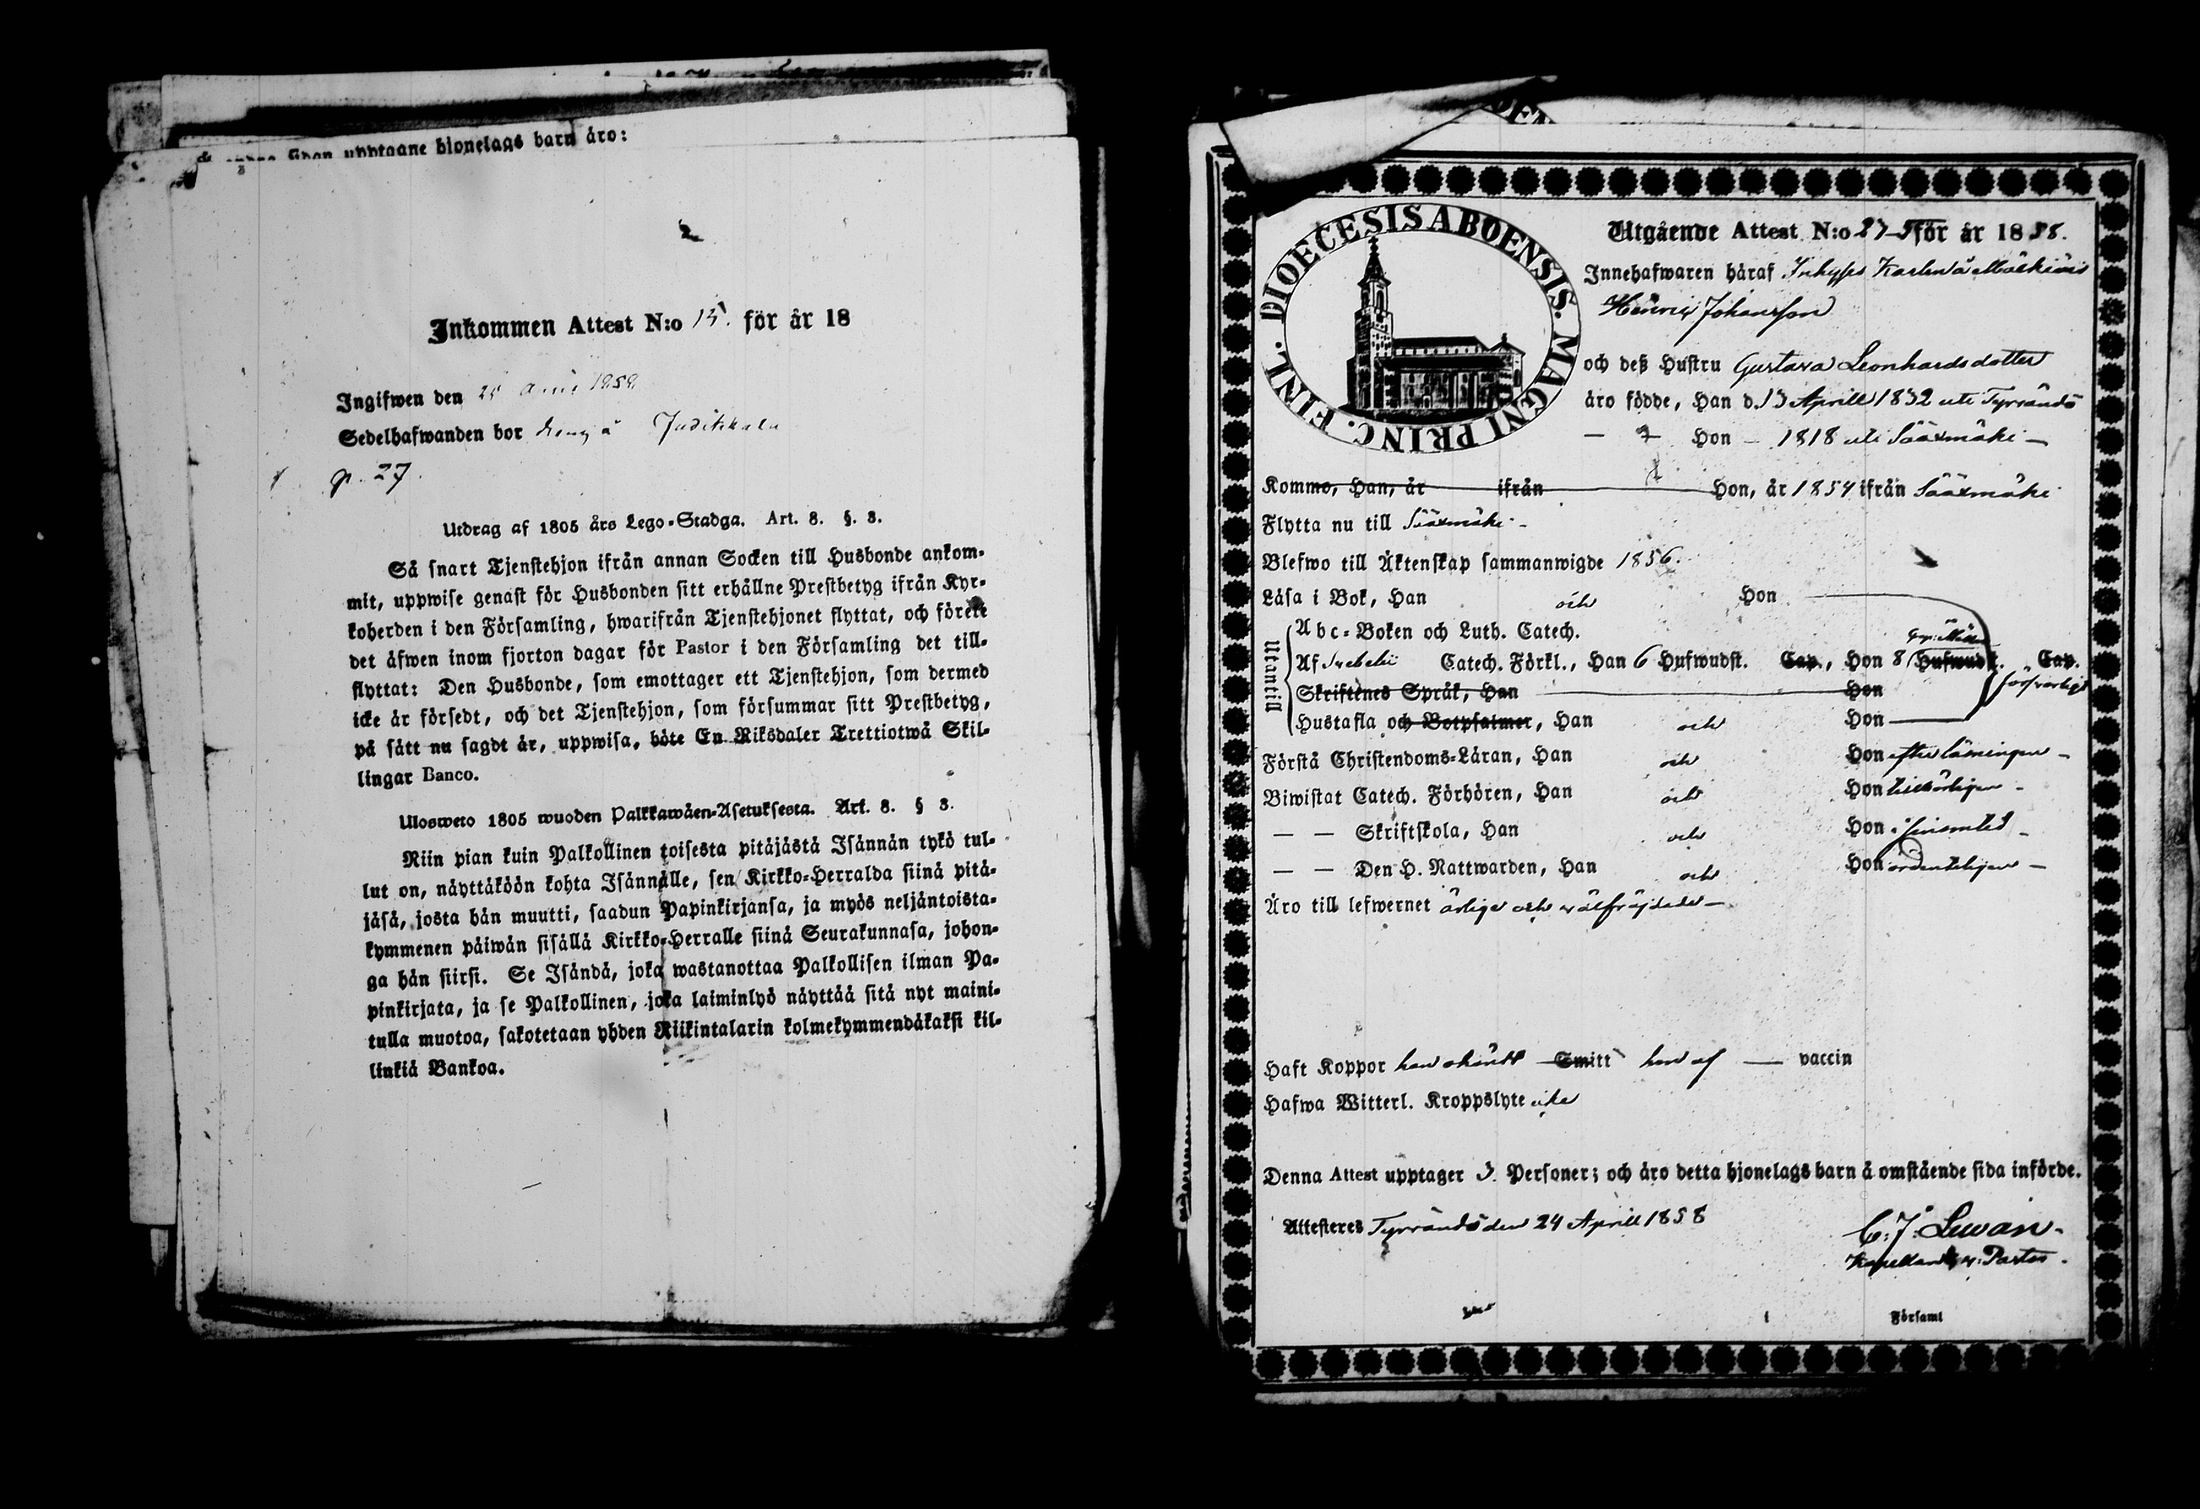 sidan upptagne hjonelags barn äro:
Inkommen Attest N:o 15. för år 18
Ingifwen den 25
Sedelhafwanden bor Judikkala
p. 27.
Utdrag af 1805 års Lego-Stadga. Art. 8. §. 3.
Så snart Tjenstehjon ifrån annan Socken till Husbonde ankom-
mit, uppwise genast för Husbonden sitt erhållne Prestbetyg ifrån Kyr-
koherden i den Församling, hwarifrån Tjenstehjonet flyttat, och förete
det äfwen inom fjorton dagar för Pastor i den Församling det till-
flyttat: Den Husbonde, som emottager ett Tjenstehjon, som dermed
icke är försedt, och det Tjenstehjon, som försummar sitt Prestbetyg,
på sätt nu sagdt är, uppwisa, böte En Riksdaler Trettiotwå Skil-
lingar Banco.
Ulosweto 1805 wuoden Palkkawäen-Asetuksesta. Art. 8. § 3.
Niin pian kuin Palkollinen toisesta pitäjästä Isännän tykö tul-
lut on, näyttäköön kohta Isännälle, sen Kirkko-Herralda siinä pitä-
jäsä, josta hän muutti, saadun Papinkirjansa, ja myös neljäntoista-
kymmenen päiwän sisällä Kirkko-Herralle siinä Seurakunnasa, johon-
ga hän siirsi. Se Isändä, joka wastanottaa Palkollisen ilman Pa-
pinkirjata, ja se Palkollinen, joka laiminlyö näyttää sitä nyt maini-
tulla muotoa, sakotetaan yhden Riikintalarin kolmekymmendäkaksi kil-
linkiä Bankoa.
DIOECESIS ABOENSIS. MAGNI PRINC. FINL.
Utgående Attest N:o 27 för år 1858.
Innehafwaren häraf Inhyses Karln å
Henric Johansson
och deß Hustru Gustava Leonhardsdotter
äro födde, Han d. 13 Aprill 1832 uti Tyrvändö
— Hon — 1818 uti Sääxmäki —
Kommo, Han, år ifrån Hon, år 1854 ifrån Sääxmäki
Flytta nu till Sääxmäki -
Blefwo till Äktenskap sammanwigde 1856.
Läsa i Bok, Han och Hon
Utantill
Abc-Boken och Luth. Catech.
Af Svebelii Catech. Förkl., Han 6 Hufwudst. Cap., Hon 8 Hufwudst. Cap.
försvarligt
Skriftenes Språk, Han Hon
Hustafla och Botpsalmer, Han och Hon
Förstå Christendoms-Läran, Han och Hon efter läsningen -
Biwistat Catech. Förhören, Han och Hon
— — Skriftskola, Han och Hon
— — Den H. Nattwarden, Han och Hon ordenteligen —
Äro till lefwernet ärlige och välfräjdade —
Haft Koppor han Smitt hon af — vaccin
Hafwa Witterl. Kroppslyte icke
Denna Attest upptager 3. Personer; och äro detta hjonelags barn å omstående sida införde.
Attesteres Tyrvändö den 24 Aprill 1858
C. J. Lewan.
Kapellan v. Pastor.
Församl